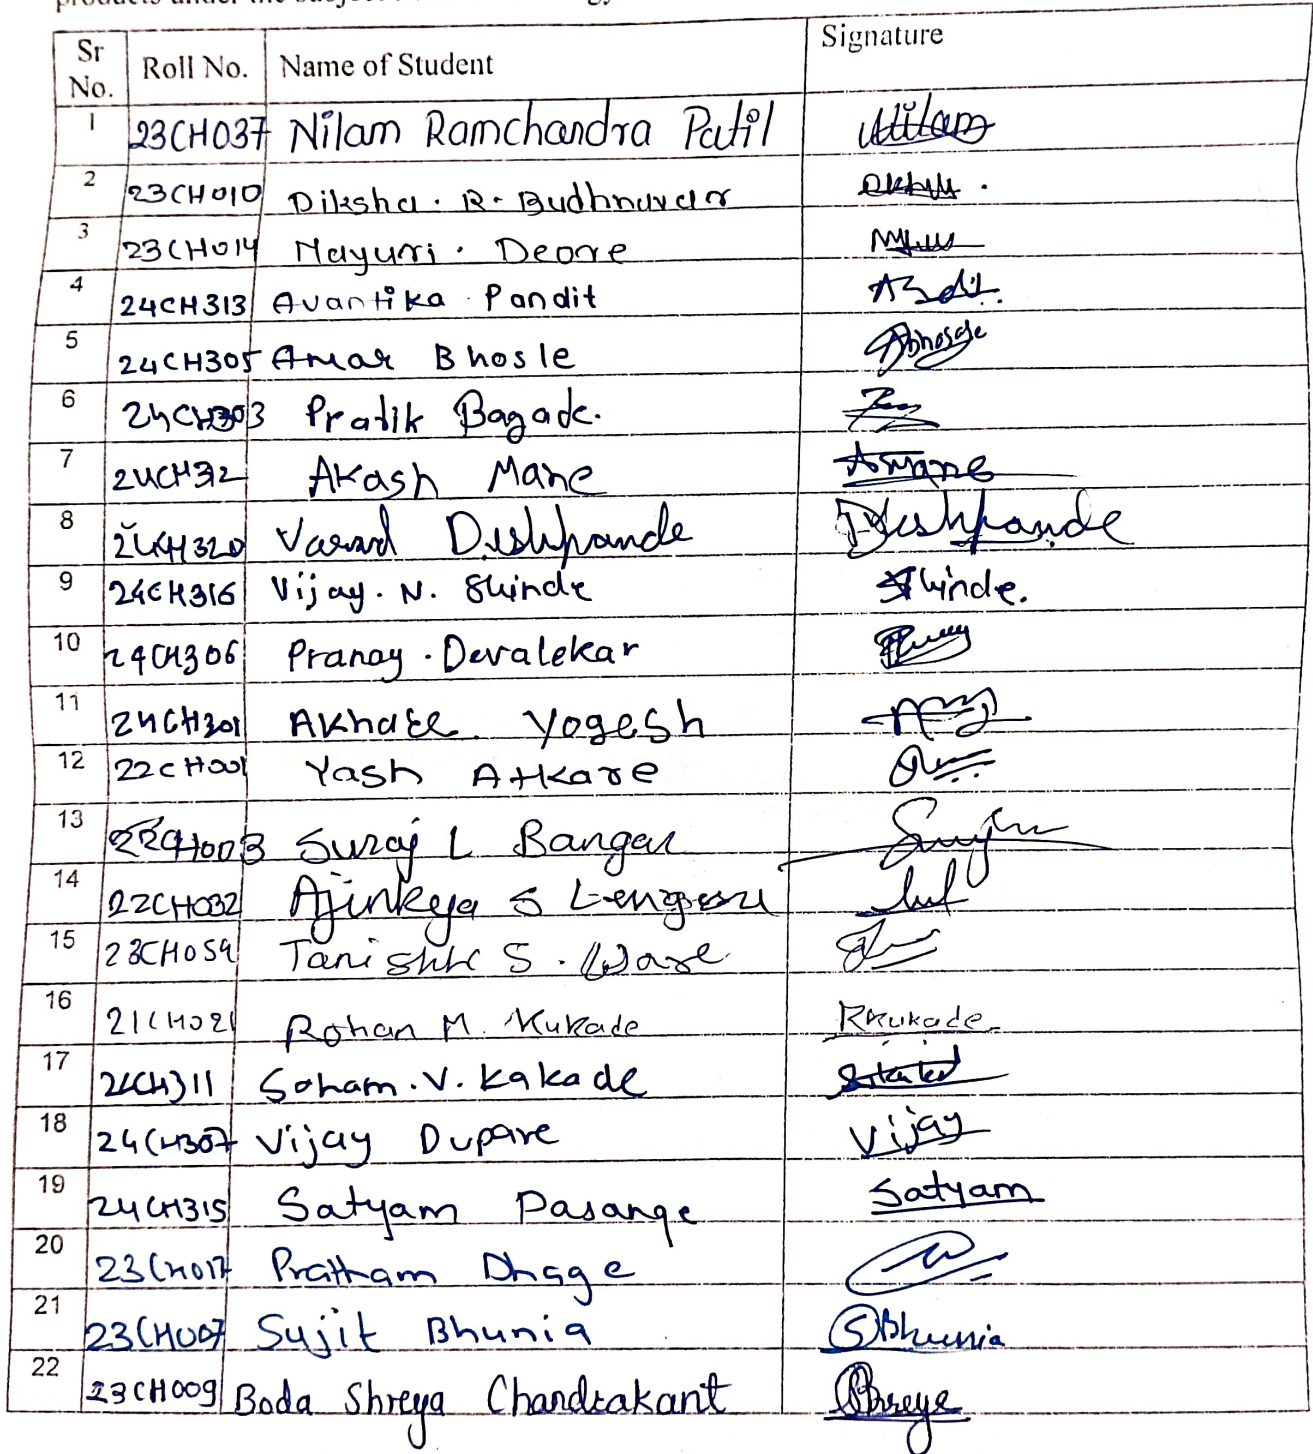 Sr No. Roll No. Name of Student Signature
1 23CH037 Nilam Ramchandra Patil
2 23CH010 Diksha. R. Budhnavar
3 23CH014 Mayuri. Deore
4 24CH313 Avantika Pandit
5 24CH305 Amar Bhosle
6 24CH303 Pratik Bagade.
7 24CH312 Akash Mane Asmane
8 24CH320 Varad Deshpande Deshpande
9 24CH316 Vijay. N. Shinde Shinde.
10 24CH306 Pranay. Devalekar
11 24CH301 Akhate Yogesh
12 22CH001 Yash Atkare
13 22CH003 Suraj L Bangar
14 22CH032 Ajinkya S
15 23CH059 Tanishk S. Ware
16 21CH021 Rohan M. Kukade RKukade.
17 24CH311 Soham. V. Kakade
18 24CH307 Vijay Dupare Vijay
19 24CH315 Satyam Pasange Satyam
20 23CH017 Pratham Dhage
21 23CH007 Sujit Bhunia SBhunia
22 23CH009 Boda Shreya Chandrakant Shreya